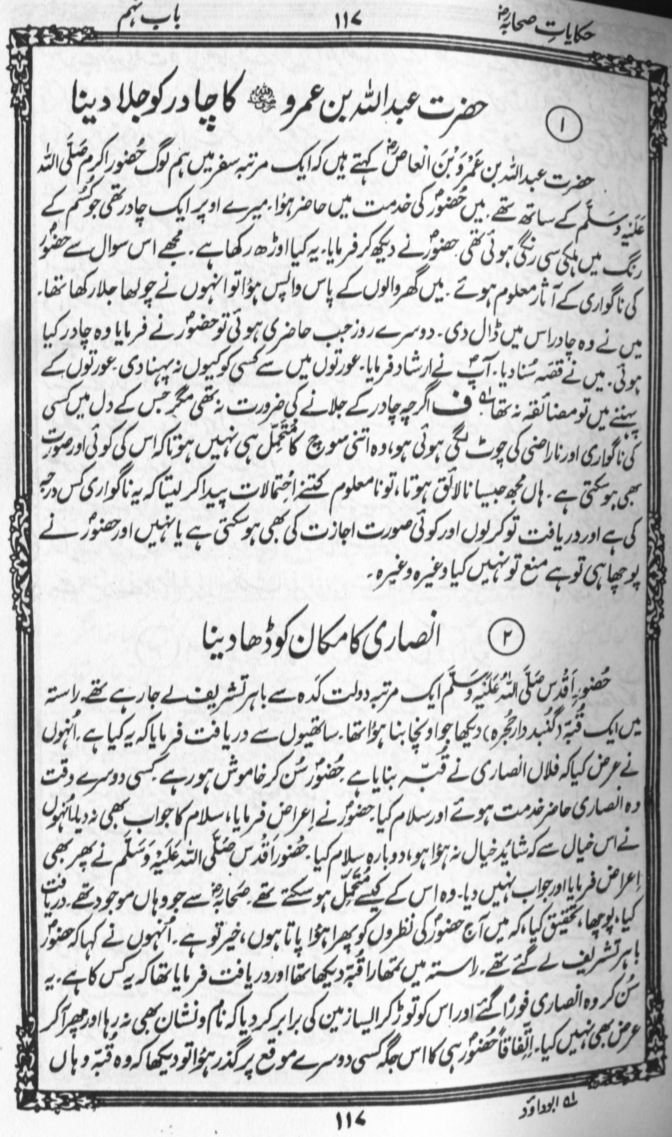 حکایاتِ صحابہؓ ۱۱۷ باب نہم
۱ حضرت عبد اللہ بن عمرو ؓ کا چادر کو جلا دینا
حضرت عبد اللہ بن عَمْرو بْنِ العاصؓ کہتے ہیں کہ ایک مرتبہ سفر میں ہم لوگ حُضُورِ اکرم صَلَّی اللہُ
عَلَیْہِ وَسَلَّم کے ساتھ تھے۔ میں حُضُورؐ کی خدمت میں حاضر ہؤا۔ میرے اوپر ایک چادر تھی جو کُسُم کے
رنگ میں ہلکی سی رنگی ہوئی تھی۔ حضورؐ نے دیکھ کر فرمایا۔ یہ کیا اوڑھ رکھا ہے۔ مجھے اس سوال سے حضورؐ
کی ناگواری کے آثار معلوم ہوئے۔ میں گھر والوں کے پاس واپس ہؤا تو انہوں نے چولھا جلا رکھا تھا۔
میں نے وہ چادر اس میں ڈال دی۔ دوسرے روز جب حاضری ہوئی تو حضورؐ نے فرمایا وہ چادر کیا
ہوئی۔ میں نے قصّہ سُنا دیا۔ آپؐ نے ارشاد فرمایا۔ عورتوں میں سے کسی کو کیوں نہ پہنا دی۔ عورتوں کے
پہننے میں تو مضائقہ نہ تھا۔ ف اگرچہ چادر کے جلانے کی ضرورت نہ تھی مگر جس کے دل میں کسی
کی ناگواری اور ناراضی کی چوٹ لگی ہوئی ہو، وہ اتنی سوچ کا مُتَحَمِّل ہی نہیں ہوتا کہ اس کی کوئی اور صورت
بھی ہو سکتی ہے۔ ہاں مجھ جیسا نالائق ہوتا، تو نا معلوم کتنے اِحْتمالات پیدا کر لیتا کہ یہ ناگواری کس درجہ
کی ہے اور دریافت تو کر لوں اور کوئی صورت اجازت کی بھی ہو سکتی ہے یا نہیں اور حضورؐ نے
پوچھا ہی تو ہے منع تو نہیں کیا وغیرہ وغیرہ۔
۲ انصاری کا مکان کو ڈھا دینا
حُضُورِ اَقْدَس صَلَّی اللہُ عَلَیْہِ وَسَلَّم ایک مرتبہ دولت کدہ سے باہر تشریف لے جا رہے تھے۔ راستہ
میں ایک قُبّہ (گنبد دار حُجرہ) دیکھا جو اونچا بنا ہؤا تھا۔ ساتھیوں سے دریافت فرمایا کہ یہ کیا ہے۔ اُنہوں
نے عرض کیا کہ فلاں انصاری نے قُبّہ بنایا ہے۔ حضورؐ سُن کر خاموش ہو رہے۔ کسی دوسرے وقت
وہ انصاری حاضرِ خدمت ہوئے اور سلام کیا حضورؐ نے اِعراض فرمایا، سلام کا جواب بھی نہ دیا۔ انہوں
نے اس خیال سے کہ شاید خیال نہ ہؤا ہو، دوبارہ سلام کیا۔ حضورِ اَقْدَس صَلَّی اللہُ عَلَیْہِ وَسَلَّم نے پھر بھی
اِعراض فرمایا اور جواب نہیں دیا۔ وہ اس کے کیسے مُتَحَمِّل ہو سکتے تھے۔ صحابہؓ سے جو وہاں موجود تھے۔ دریافت
کیا، پوچھا، تحقیق کیا، کہ میں آج حضورؐ کی نظروں کو پھرا ہؤا پاتا ہوں، خیر تو ہے۔ اُنہوں نے کہا کہ حضورؐ
باہر تشریف لے گئے تھے۔ راستہ میں تمھارا قُبّہ دیکھا تھا اور دریافت فرمایا تھا کہ یہ کس کا ہے۔ یہ
سُن کر وہ انصاری فورًا گئے اور اس کو توڑ کر ایسا زمین کی برابر کر دیا کہ نام و نشان بھی نہ رہا اور پھر آ کر
عرض بھی نہیں کیا۔ اِتِّفاقًا حُضُورؐ ہی کا اس جگہ کسی دوسرے موقع پر گذر ہؤا تو دیکھا کہ وہ قبّہ وہاں
لہ ابوداؤد
۱۱۷